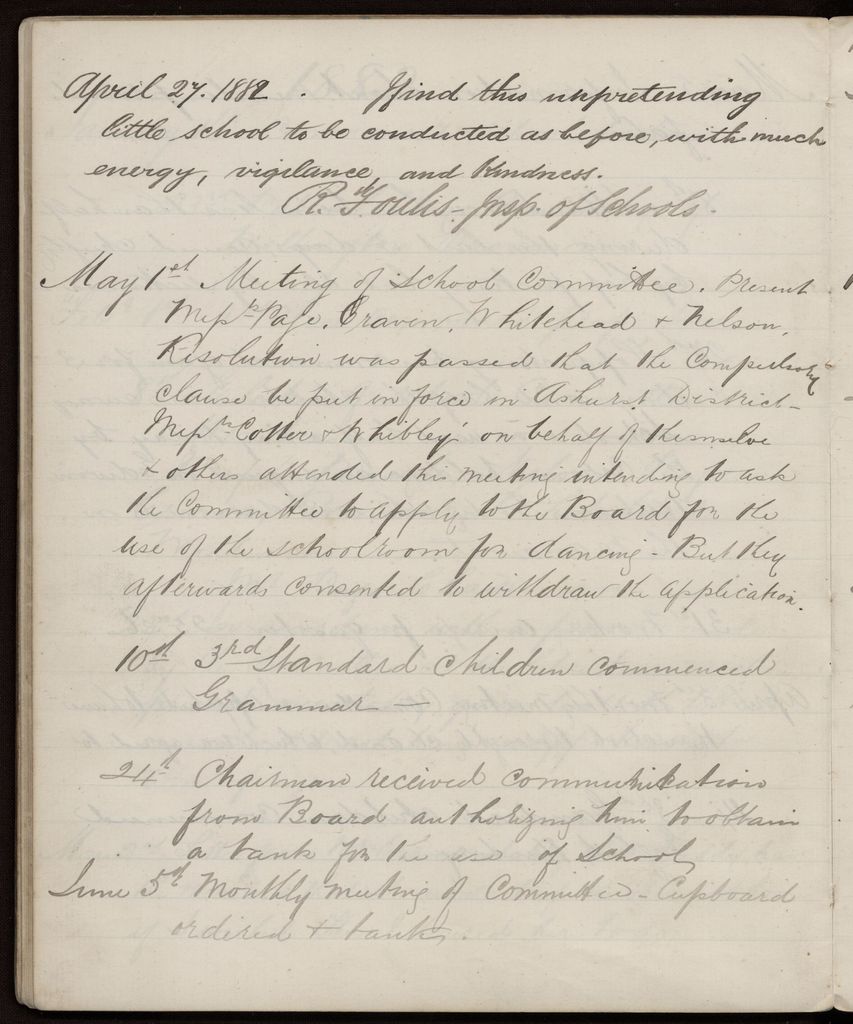 April 27. 1882. I find this unpretending
little school to be conducted as before, with much
energy, vigilance, and kindness.
R. Foulis - Insp. of Schools.
May 1st Meeting of School Committee. Present
Messrs Page, Craven, Whitehead & Nelson.
Resolution was passed that the Compulsory
clause be put in force in Ashurst District -
Messrs Cotter & Whibley on behalf of themselve
& others attended this meeting intending to ask
the Committee to apply to the Board for the
use of the schoolroom for dancing - But they
afterwards consented to withdraw the application.
10th 3rd Standard Children commenced
Grammar —
24th Chairman received communikation
from Board authorizing him to obtain
a tank for the use of School
June 5th Monthly meeting of Committee - Cupboard
ordered & tank.